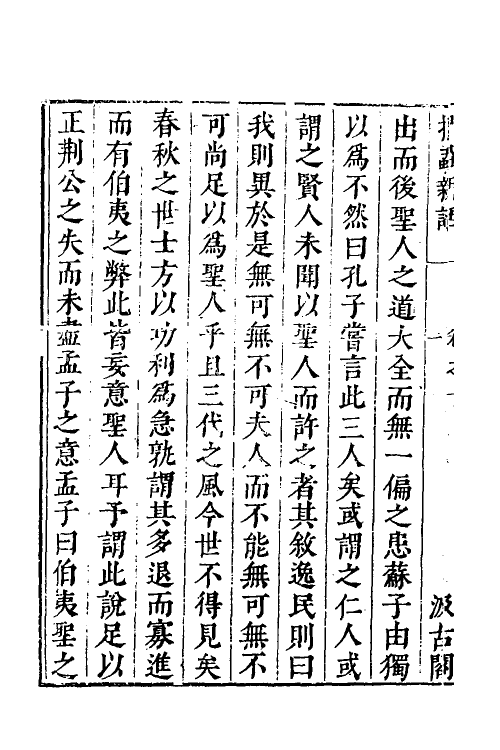 捫蝨新語
汲古閣
出而後聖人之道大全而無一偏之患蘇子由獨
以爲不然曰孔子嘗言此三人矣或謂之仁人或
謂之賢人未聞以聖人而許之者其敘逸民則曰
我則異於是無可無不可夫人而不能無可無不
可尚足以爲聖人乎且三代之風今世不得見矣
春秋之世士方以功利爲急孰謂其多退而寡進
而有伯夷之弊此皆妄意聖人耳予謂此說足以
正荆公之失而未盡孟子之意孟子曰伯夷聖之